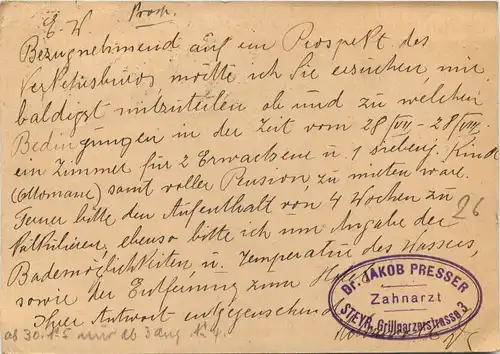 E. W.
Prosp.
Bezugnehmend auf im Prospekt des
Verkehrsburos, möchte ich Sie ersuchen, mir
baldigst mitzuteilen ob und zu welchen
Bedingungen in der Zeit vom 28/VII - 28/VIII
ein Zimmer für 2 Erwachsene u. 1 siebenj. Kind
(Ottomane) samt voller Pension, zu mieten wäre.
Ferner bitte den Aufenthalt von 4 Wochen zu
kalkulieren, ebenso bitte ich um Angabe der
26
Bademöglichkeiten, u. Temperatur des Wassers,
sowie der Entfernung zum
Ihrer Antwort entgegensehend
DR. JAKOB PRESSER
Zahnarzt
STEYR, Grillparzerstrasse 3